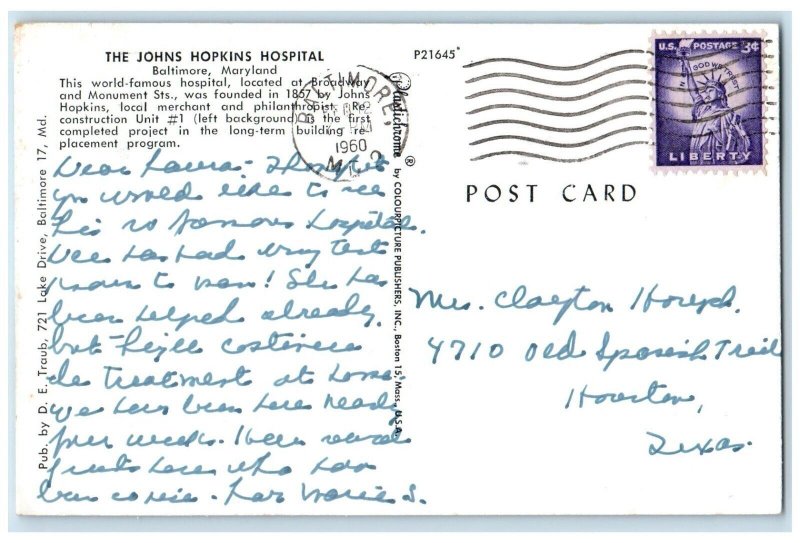 THE JOHNS HOPKINS HOSPITAL
Baltimore, Maryland
This world-famous hospital, located at Broadway
and Monument Sts., was founded in 1867 by Johns
Hopkins, local merchant and philanthropist. Re-
construction Unit #1 (left background) is the first
completed project in the long-term building re-
placement program.
P21645
Pub. by D. E. Traub, 721 Lake Drive, Baltimore 17, Md.
Plastichrome ® by COLOURPICTURE PUBLISHERS, INC., Boston 15, Mass., U.S.A.
BALTIMORE,
1960
MD. 3
U.S. POSTAGE 3¢
IN GOD WE TRUST
LIBERTY
POST CARD
Dear Laura - Thought
you would like to see
this so famous hospital.
has had every test
known to man! She has
been helped already,
but she'll continue
the treatment at home.
We have been here nearly
four weeks. Have
friends here who have
been so nice.
Mrs. Clayton
4710 Old Spanish Trail
Houston,
Texas.